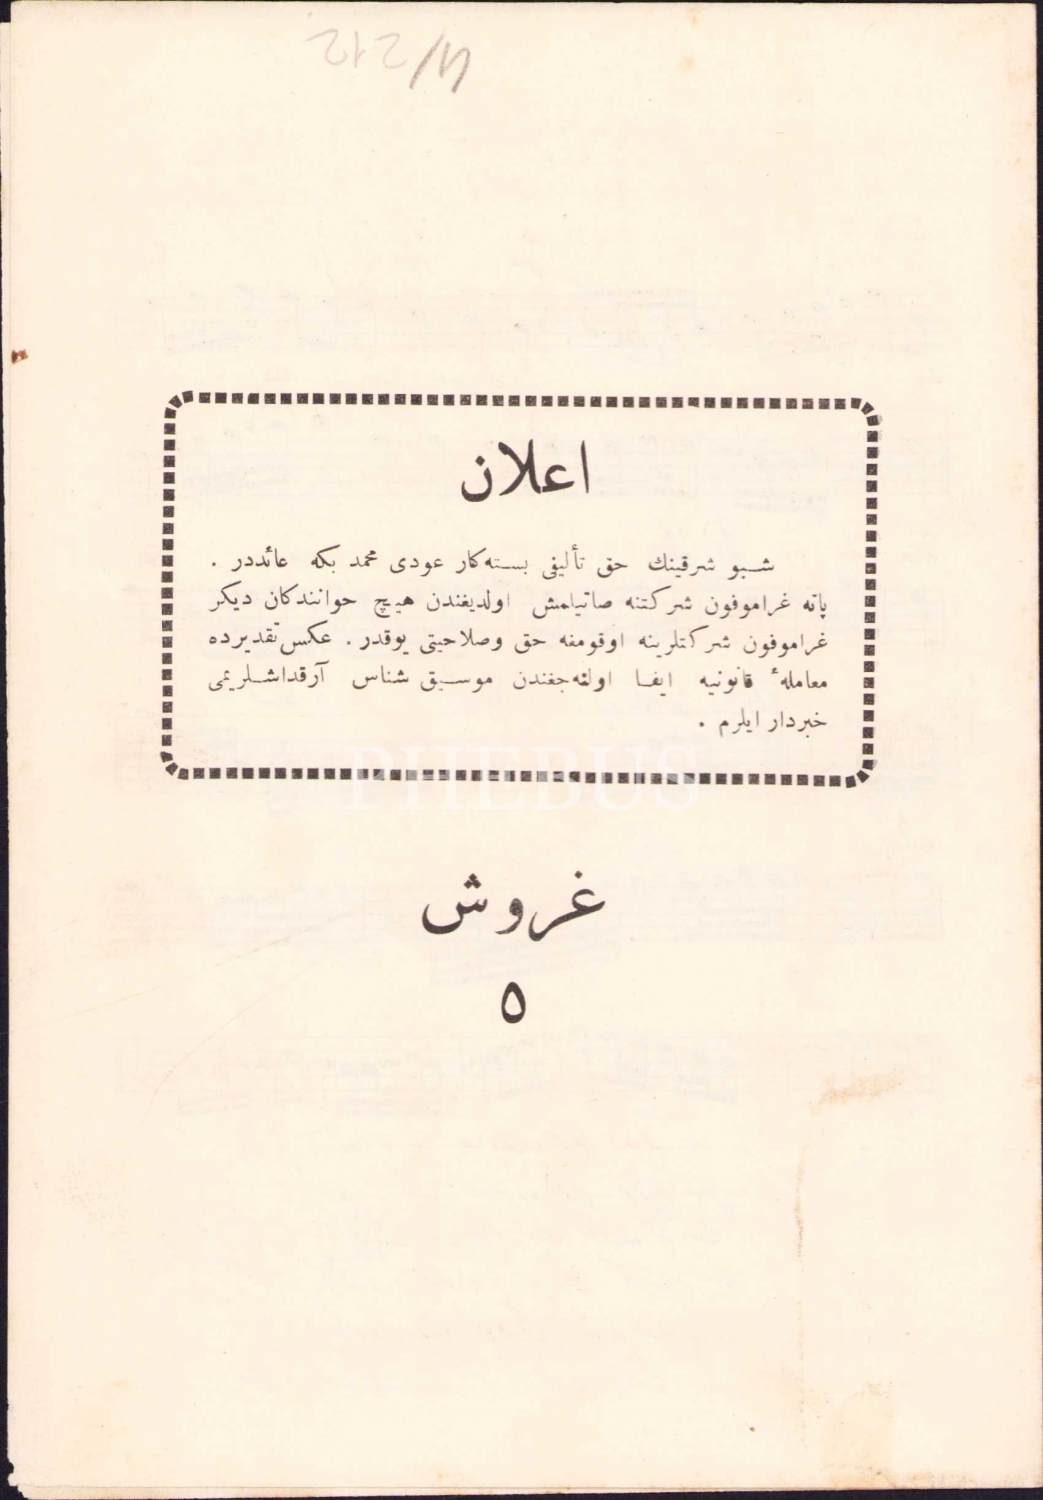 4/212
اعلان
شبو شرقينك حق تأليفى بسته‌كار عودى محمد بكه عائددر .
پاته غراموفون شركتنه صاتيلمش اولديغندن هيچ خوانندكان ديكر
غراموفون شركتلرينه اوقومغه حق وصلاحيتى يوقدر . عكس تقديرده
معاملهٔ قانونيه ايفا اولنه‌جغندن موسيقى شناس آرقداشلريمى
خبردار ايلرم .
PHEBUS
غروش
٥